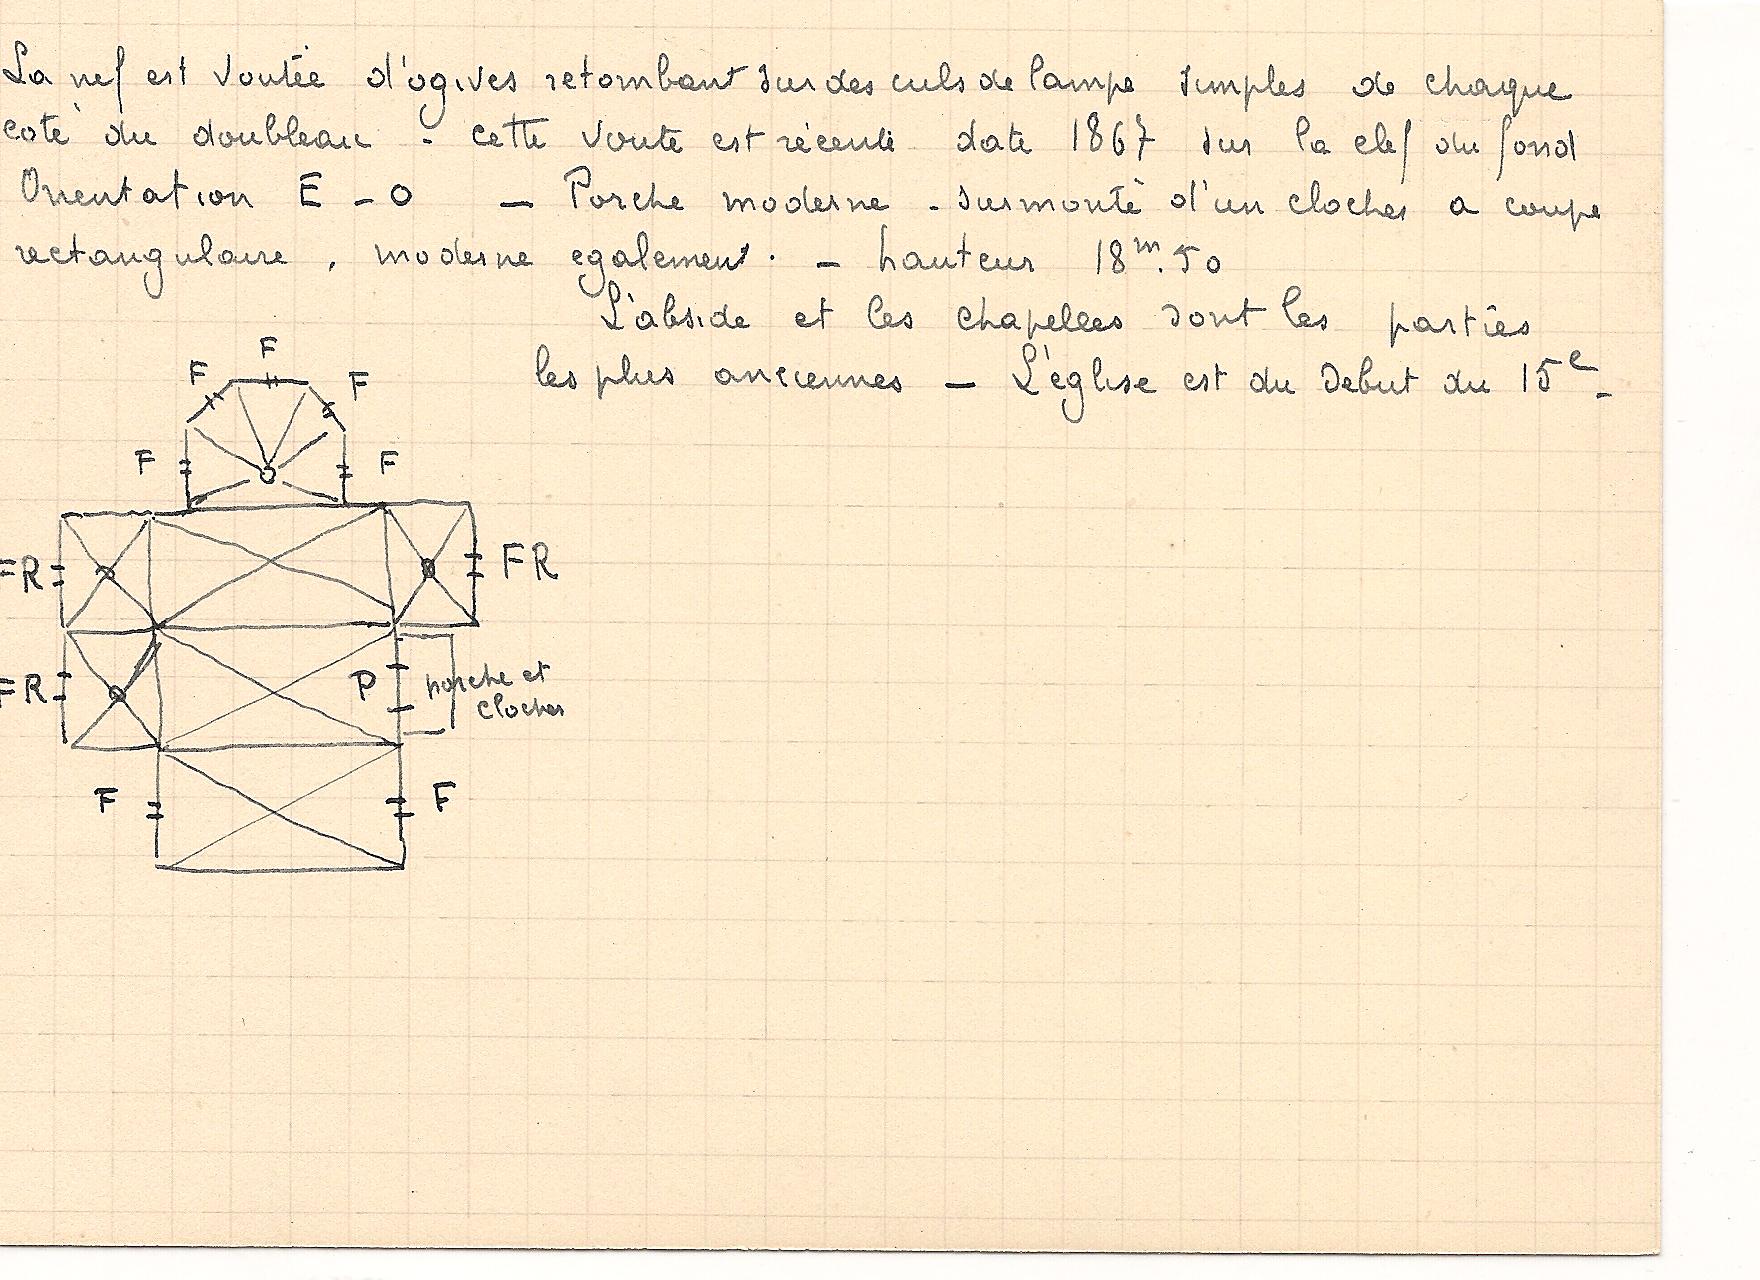 La nef est voutée d'ogives retombant sur des culs de lampe simples de chaque
coté du doubleau - cette voute est récente date 1867 sur la clef du fond
Orientation E - O — Porche moderne - surmonté d'un clocher a coupe
rectangulaire, moderne egalement. — hauteur 18m.50
L'abside et les chapelles sont les parties
les plus anciennes — L'église est du debut du 15e -
F
F F
F F
FR FR
FR P porche et
clocher
F F